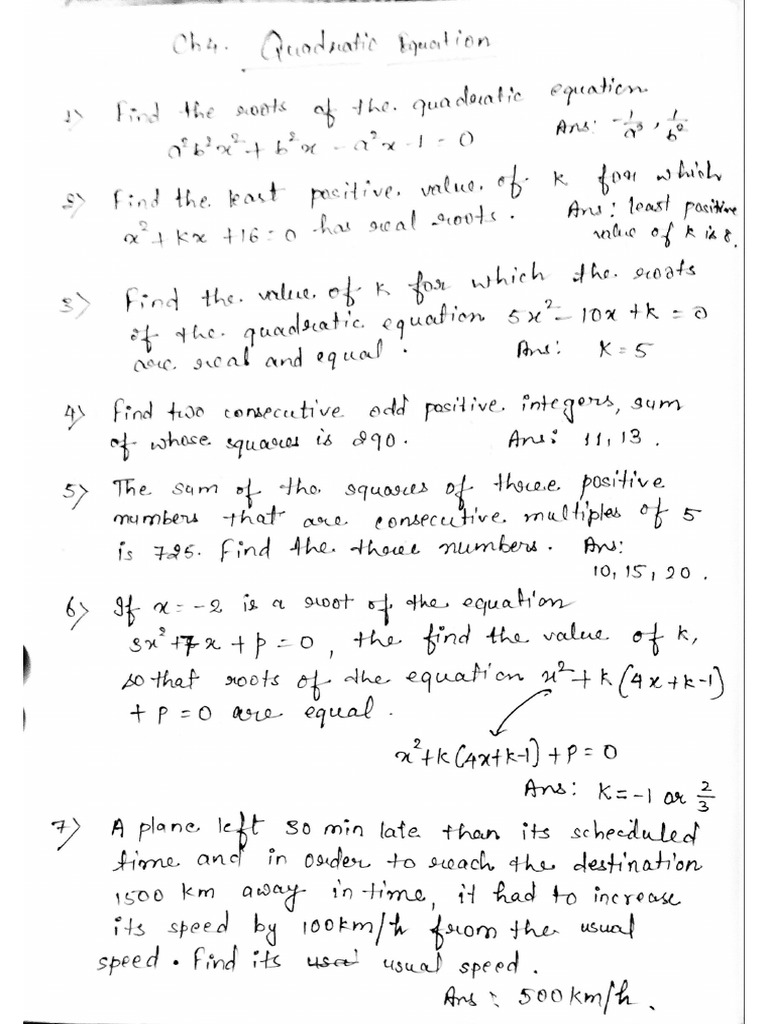 Ch4. Quadratic Equation
1) Find the roots of the quadratic equation
a²b²x² + b²x - a²x - 1 = 0
Ans: -1/a², 1/b²
2) Find the least positive value of k for which
x² + kx + 16 = 0 has real roots.
Ans: least positive
value of k is 8.
3) Find the value of k for which the roots
of the quadratic equation 5x² - 10x + k = 0
are real and equal.
Ans: k = 5
4) Find two consecutive odd positive integers, sum
of whose squares is 290.
Ans: 11, 13.
5) The sum of the squares of three positive
numbers that are consecutive multiples of 5
is 725. Find the three numbers. Ans:
10, 15, 20.
6) If x = -2 is a root of the equation
3x² + 7x + p = 0, the find the value of k,
so that roots of the equation x² + k(4x + k - 1)
+ p = 0 are equal.
x² + k(4x + k - 1) + p = 0
Ans: k = -1 or 2/3
7) A plane left 30 min late than its scheduled
time and in order to reach the destination
1500 km away in time, it had to increase
its speed by 100km/h from the usual
speed. Find its usual speed.
Ans: 500km/h.